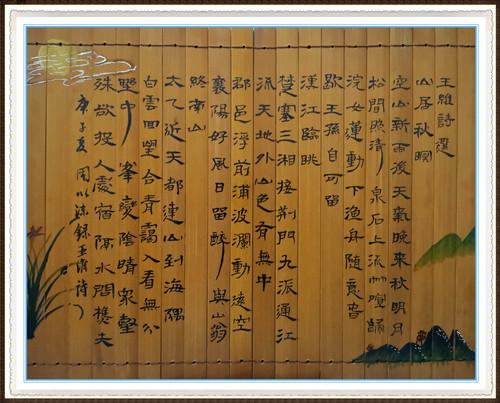 王維詩選
山居秋暝
空山新雨後天氣晚來秋明月
松間照清泉石上流竹喧歸
浣女蓮動下漁舟隨意春
歇王孫自可留
漢江臨眺
楚塞三湘接荊門九派通江
流天地外山色有無中
郡邑浮前浦波瀾動遠空
襄陽好風日留醉與山翁
終南山
太乙近天都連山到海隅
白雲回望合青靄入看無分
野中峯變陰晴眾壑
殊欲投人處宿隔水問樵夫
庚子夏錄王維詩